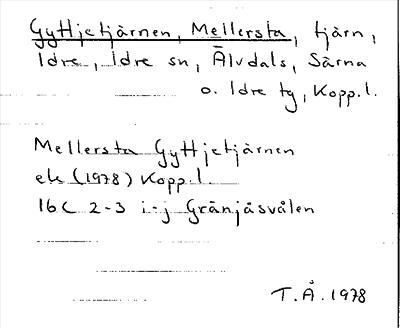 Gyttjetjärnen, Mellersta, tjärn,
Idre, Idre sn, Älvdals, Särna
o. Idre tg, Kopp.l.
Mellersta Gyttjetjärnen
ek (1978) Kopp.l.
16C 2-3 i-j Gränjåsvålen
T.Å. 1978